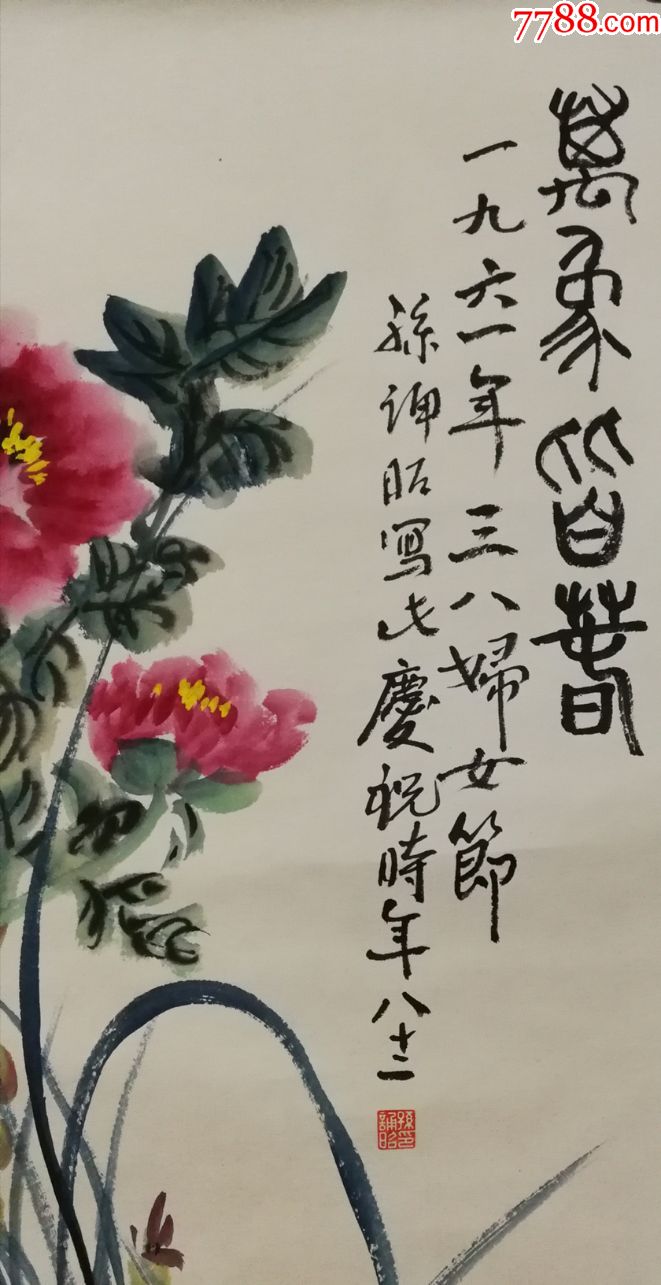 7788.com
萬象皆春
一九六一年三八婦女節
孫誦昭寫此慶祝時年八十二
孫誦昭印